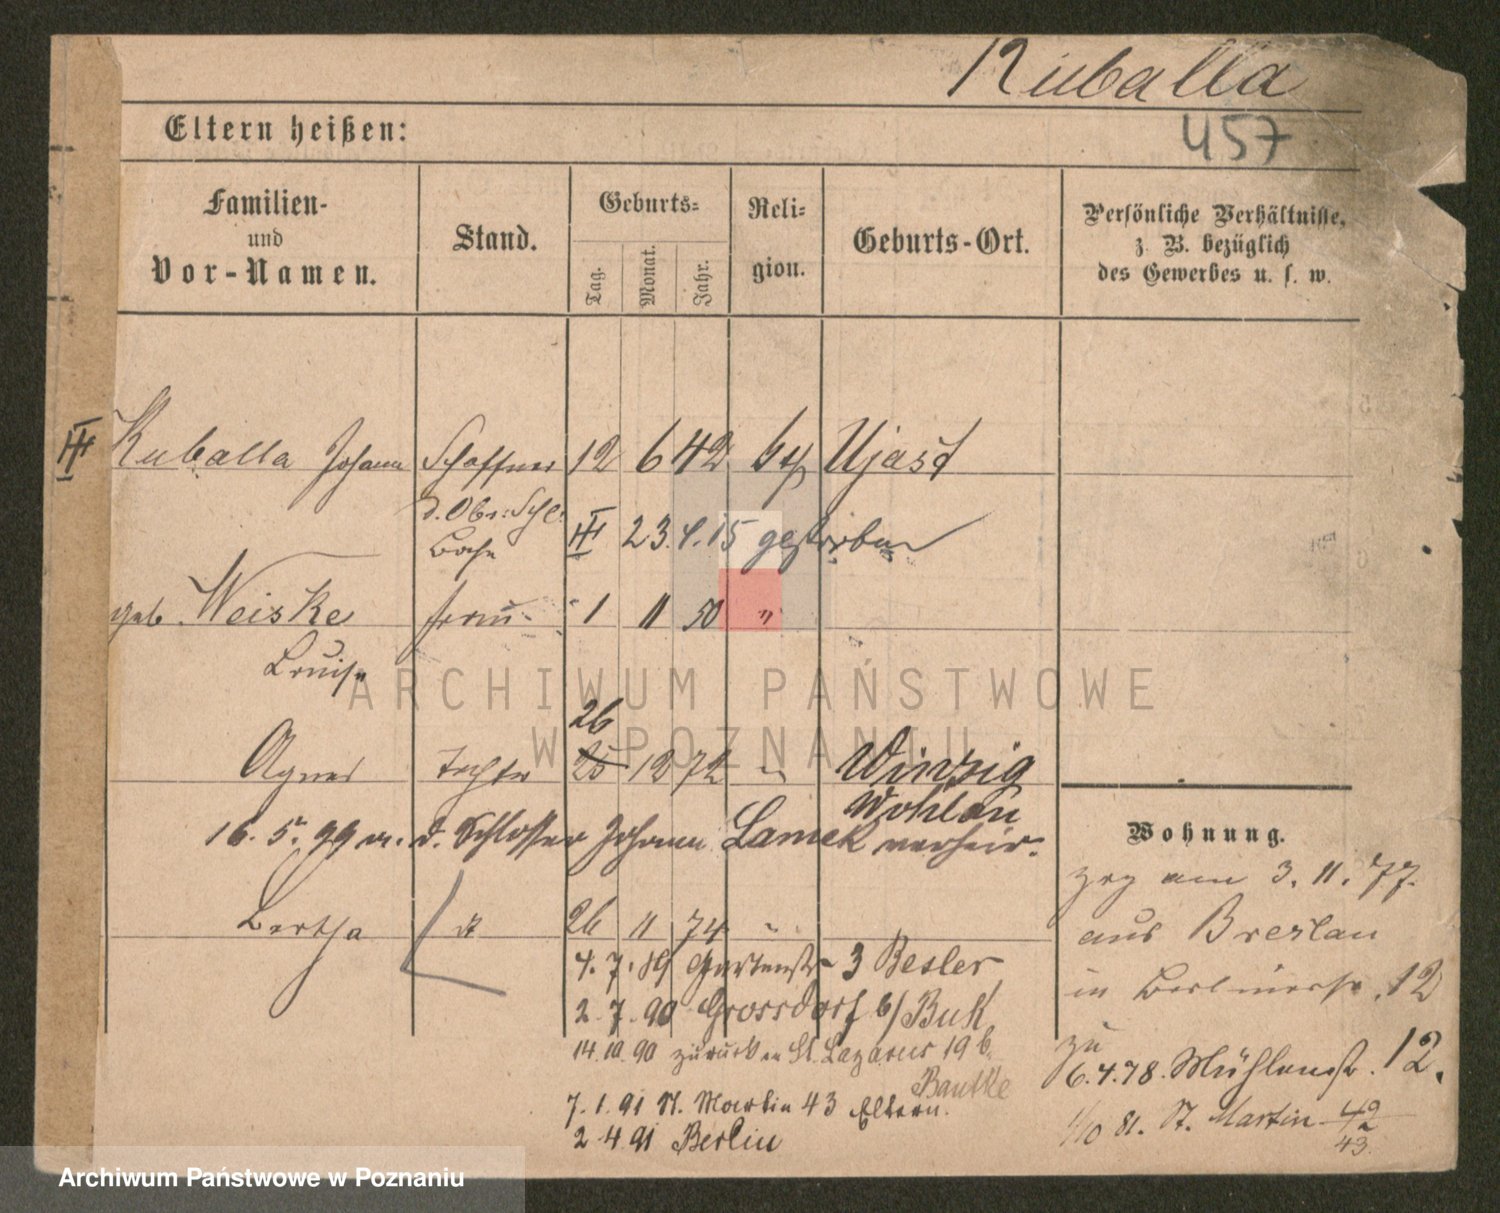 Kuballa
457
Eltern heißen:
Familien-
und
Vor-Namen.
Stand.
Geburts-
Tag.
Monat.
Jahr.
Reli-
gion.
Geburts-Ort.
Persönliche Verhältnisse,
z. B. bezüglich
des Gewerbes u. s. w.
III Kuballa Johann Schaffner 12 6 42 Ujast
d. Obr: Schl.
Bahn III 23. 4. 15 gestorben
geb. Weiske Frau 1 11 50 "
Louise
26
Agnes Tochter 25 12 72 " Winzig
Wohlau
16. 5. 99 m. d. Schlosser Johann Lamek verheir.
Bertha dt 26 11 74 "
4. 7. 89 Gartenstr 3 Besler
2. 7. 90 Grossdorf b/ Buk
14. 10. 90 zurück n St. Lazarus 19 b.
Bautke
7. 1. 91 St. Martin 43 Eltern.
2 4. 91 Berlin
Wohnung.
zog am 3. 11. 77.
aus Breslau
in Berlinerstr. 12
zu
6. 4. 78. Mühlenstr. 12.
1/10 81. St. Martin 42
43.
ARCHIWUM PAŃSTWOWE
W POZNANIU
Archiwum Państwowe w Poznaniu